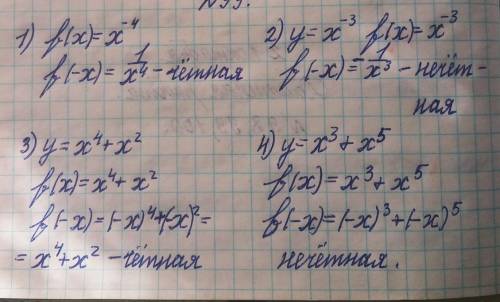 №99.
1) f(x)=x⁻⁴
f(-x)=1/x⁴ - чётная
2) y=x⁻³ f(x)=x⁻³
f(-x)=-1/x³ - нечёт-
ная
3) y=x⁴+x²
f(x)=x⁴+x²
f(-x)=(-x)⁴+(-x)²=
=x⁴+x² - чётная
4) y=x³+x⁵
f(x)=x³+x⁵
f(-x)=(-x)³+(-x)⁵
нечётная.